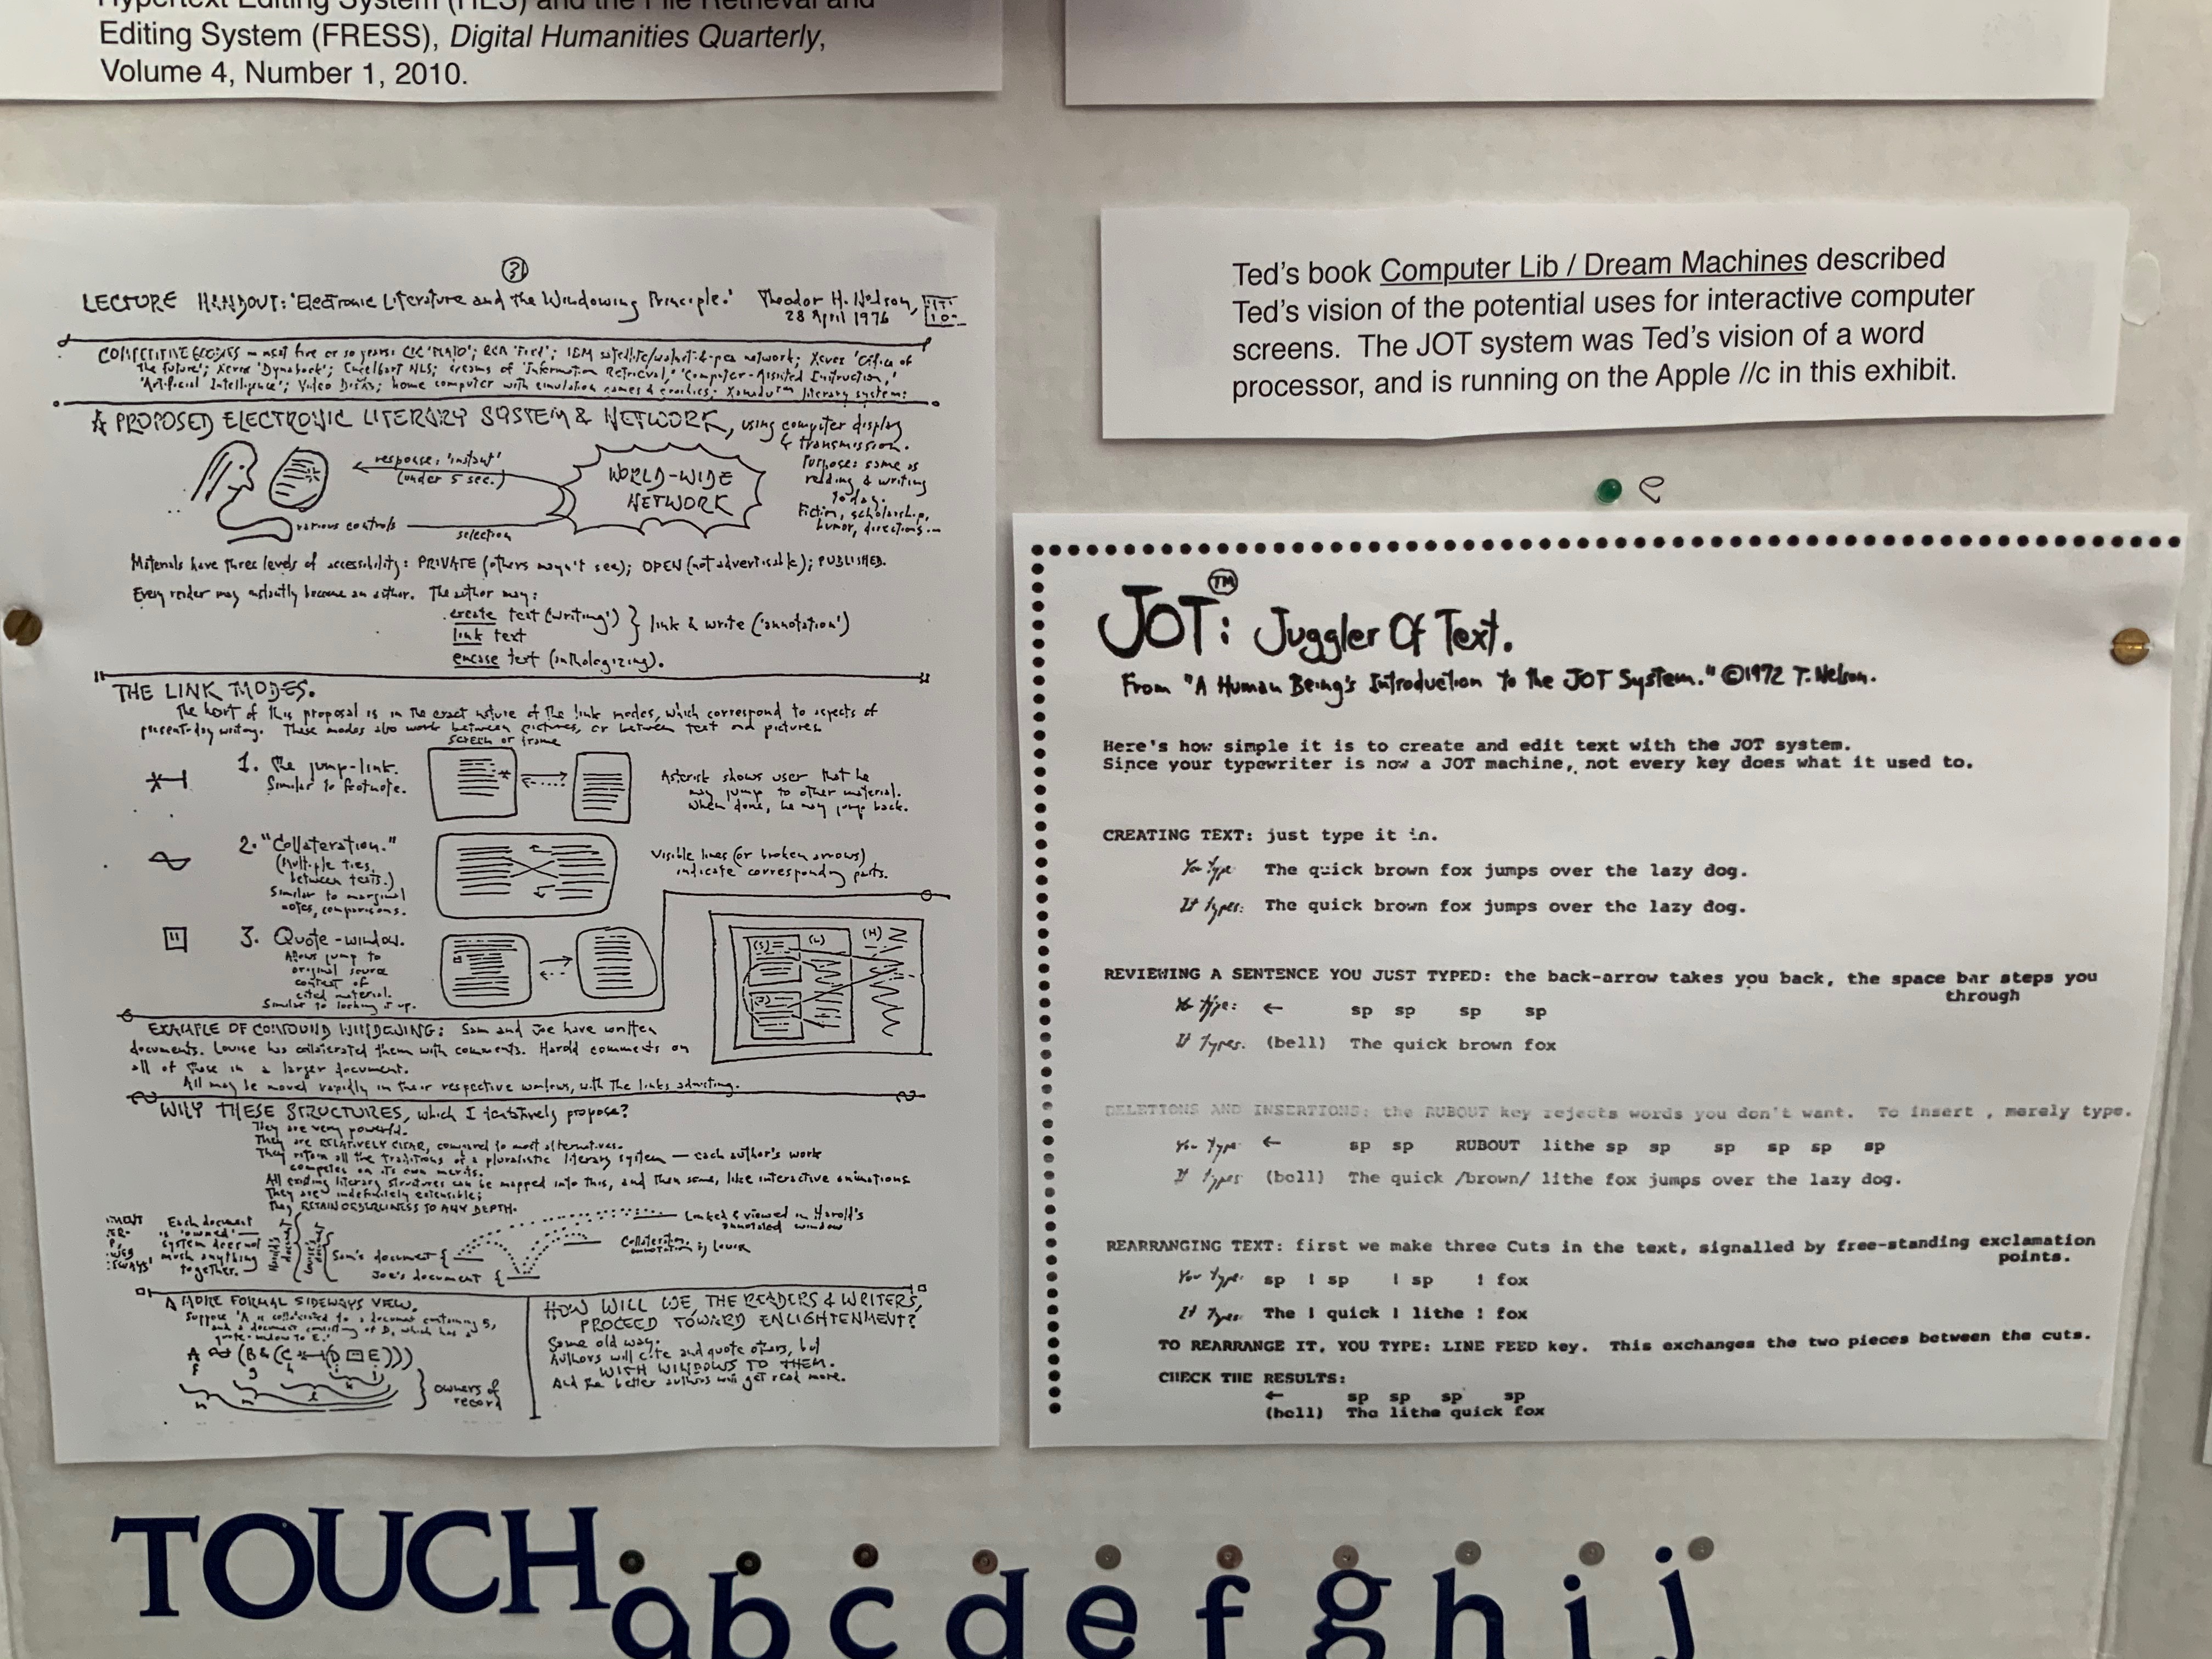 Editing System (FRESS), Digital Humanities Quarterly,
Volume 4, Number 1, 2010.
31
LECTURE HANDOUT: 'Electronic Literature and the Windowing Principle.' Theodor H. Nelson,
28 April 1976
COMPETITIVE DOGMES — next five or so years: CDC 'PLATO'; RCA IBM satellite network; Xerox 'Office of
the Future'; Xerox 'Dynabook'; Engelbart NLS; dreams of 'Information Retrieval,' 'Computer-Assisted Instruction,'
'Artificial Intelligence'; Video Disks; home computer with simulation games & graphics; Xanadu™ literary system:
A PROPOSED ELECTRONIC LITERARY SYSTEM & NETWORK, using computer display
& transmission.
response, 'instant'
(under 5 sec.)
WORLD-WIDE
NETWORK
Purpose: same as
reading & writing
today.
Fiction, scholarship,
humor, directions...
various controls
selection
Materials have three levels of accessibility: PRIVATE (others mayn't see); OPEN (not advertisable); PUBLISHED.
Every reader may instantly become an author. The author may:
create text (writing')
link text
link & write ('annotation')
encase text (anthologizing).
THE LINK MODES.
The heart of this proposal is in the exact nature of the link modes, which correspond to aspects of
present-day writing. These modes also work between pictures, or between text and pictures.
screen or frame
1. The jump-link.
Similar to footnote.
Asterisk shows user that he
may jump to other material.
When done, he may jump back.
2. "Collateration."
(Multiple ties
between texts.)
Similar to marginal
notes, comparisons.
Visible lines (or broken arrows)
indicate corresponding parts.
3. Quote-window.
Allows jump to
original source
context of
cited material.
Similar to looking it up.
(S)
(L)
(H)
(J)
EXAMPLE OF COMPOUND WINDOWING: Sam and Joe have written
documents. Louise has collaterated them with comments. Harold comments on
all of these in a larger document.
All may be moved rapidly in their respective windows, with the links adjusting.
WHY THESE STRUCTURES, which I tentatively propose?
They are very powerful.
They are RELATIVELY CLEAR, compared to most alternatives.
They retain all the traditions of a pluralistic literary system — each author's work
competes on its own merits.
All existing literary structures can be mapped into this, and then some, like interactive animations
They are indefinitely extensible;
They RETAIN ORDERLINESS TO ANY DEPTH.
Each document
is 'owned' —
system does not
mush anything
together.
Sam's document
Joe's document
Linked & viewed in Harold's
annotated window
Collateration,
annotation by Louise
A MORE FORMAL SIDEWAYS VIEW.
Suppose 'A is collaterated to a document containing B,
and a document consisting of D, which has a
quote-window to E.'
owners of
record
HOW WILL WE, THE READERS & WRITERS,
PROCEED TOWARD ENLIGHTENMENT?
Same old way.
Authors will cite and quote others, but
WITH WINDOWS TO THEM.
And the better authors will get read more.
Ted's book Computer Lib / Dream Machines described
Ted's vision of the potential uses for interactive computer
screens. The JOT system was Ted's vision of a word
processor, and is running on the Apple //c in this exhibit.
JOT™: Juggler Of Text.
From "A Human Being's Introduction to the JOT System." ©1972 T. Nelson.
Here's how simple it is to create and edit text with the JOT system.
Since your typewriter is now a JOT machine, not every key does what it used to.
CREATING TEXT: just type it in.
You type The quick brown fox jumps over the lazy dog.
It types: The quick brown fox jumps over the lazy dog.
REVIEWING A SENTENCE YOU JUST TYPED: the back-arrow takes you back, the space bar steps you
through
You type: ← sp sp sp sp
It types. (bell) The quick brown fox
DELETIONS AND INSERTIONS: the RUBOUT key rejects words you don't want. To insert , merely type.
You type ← sp sp RUBOUT lithe sp sp sp sp sp sp
It types (bell) The quick /brown/ lithe fox jumps over the lazy dog.
REARRANGING TEXT: first we make three Cuts in the text, signalled by free-standing exclamation
points.
You type: sp ! sp ! sp ! fox
It types: The ! quick ! lithe ! fox
TO REARRANGE IT, YOU TYPE: LINE FEED key. This exchanges the two pieces between the cuts.
CHECK THE RESULTS:
← sp sp sp sp
(bell) The lithe quick fox
TOUCH
a b c d e f g h i j